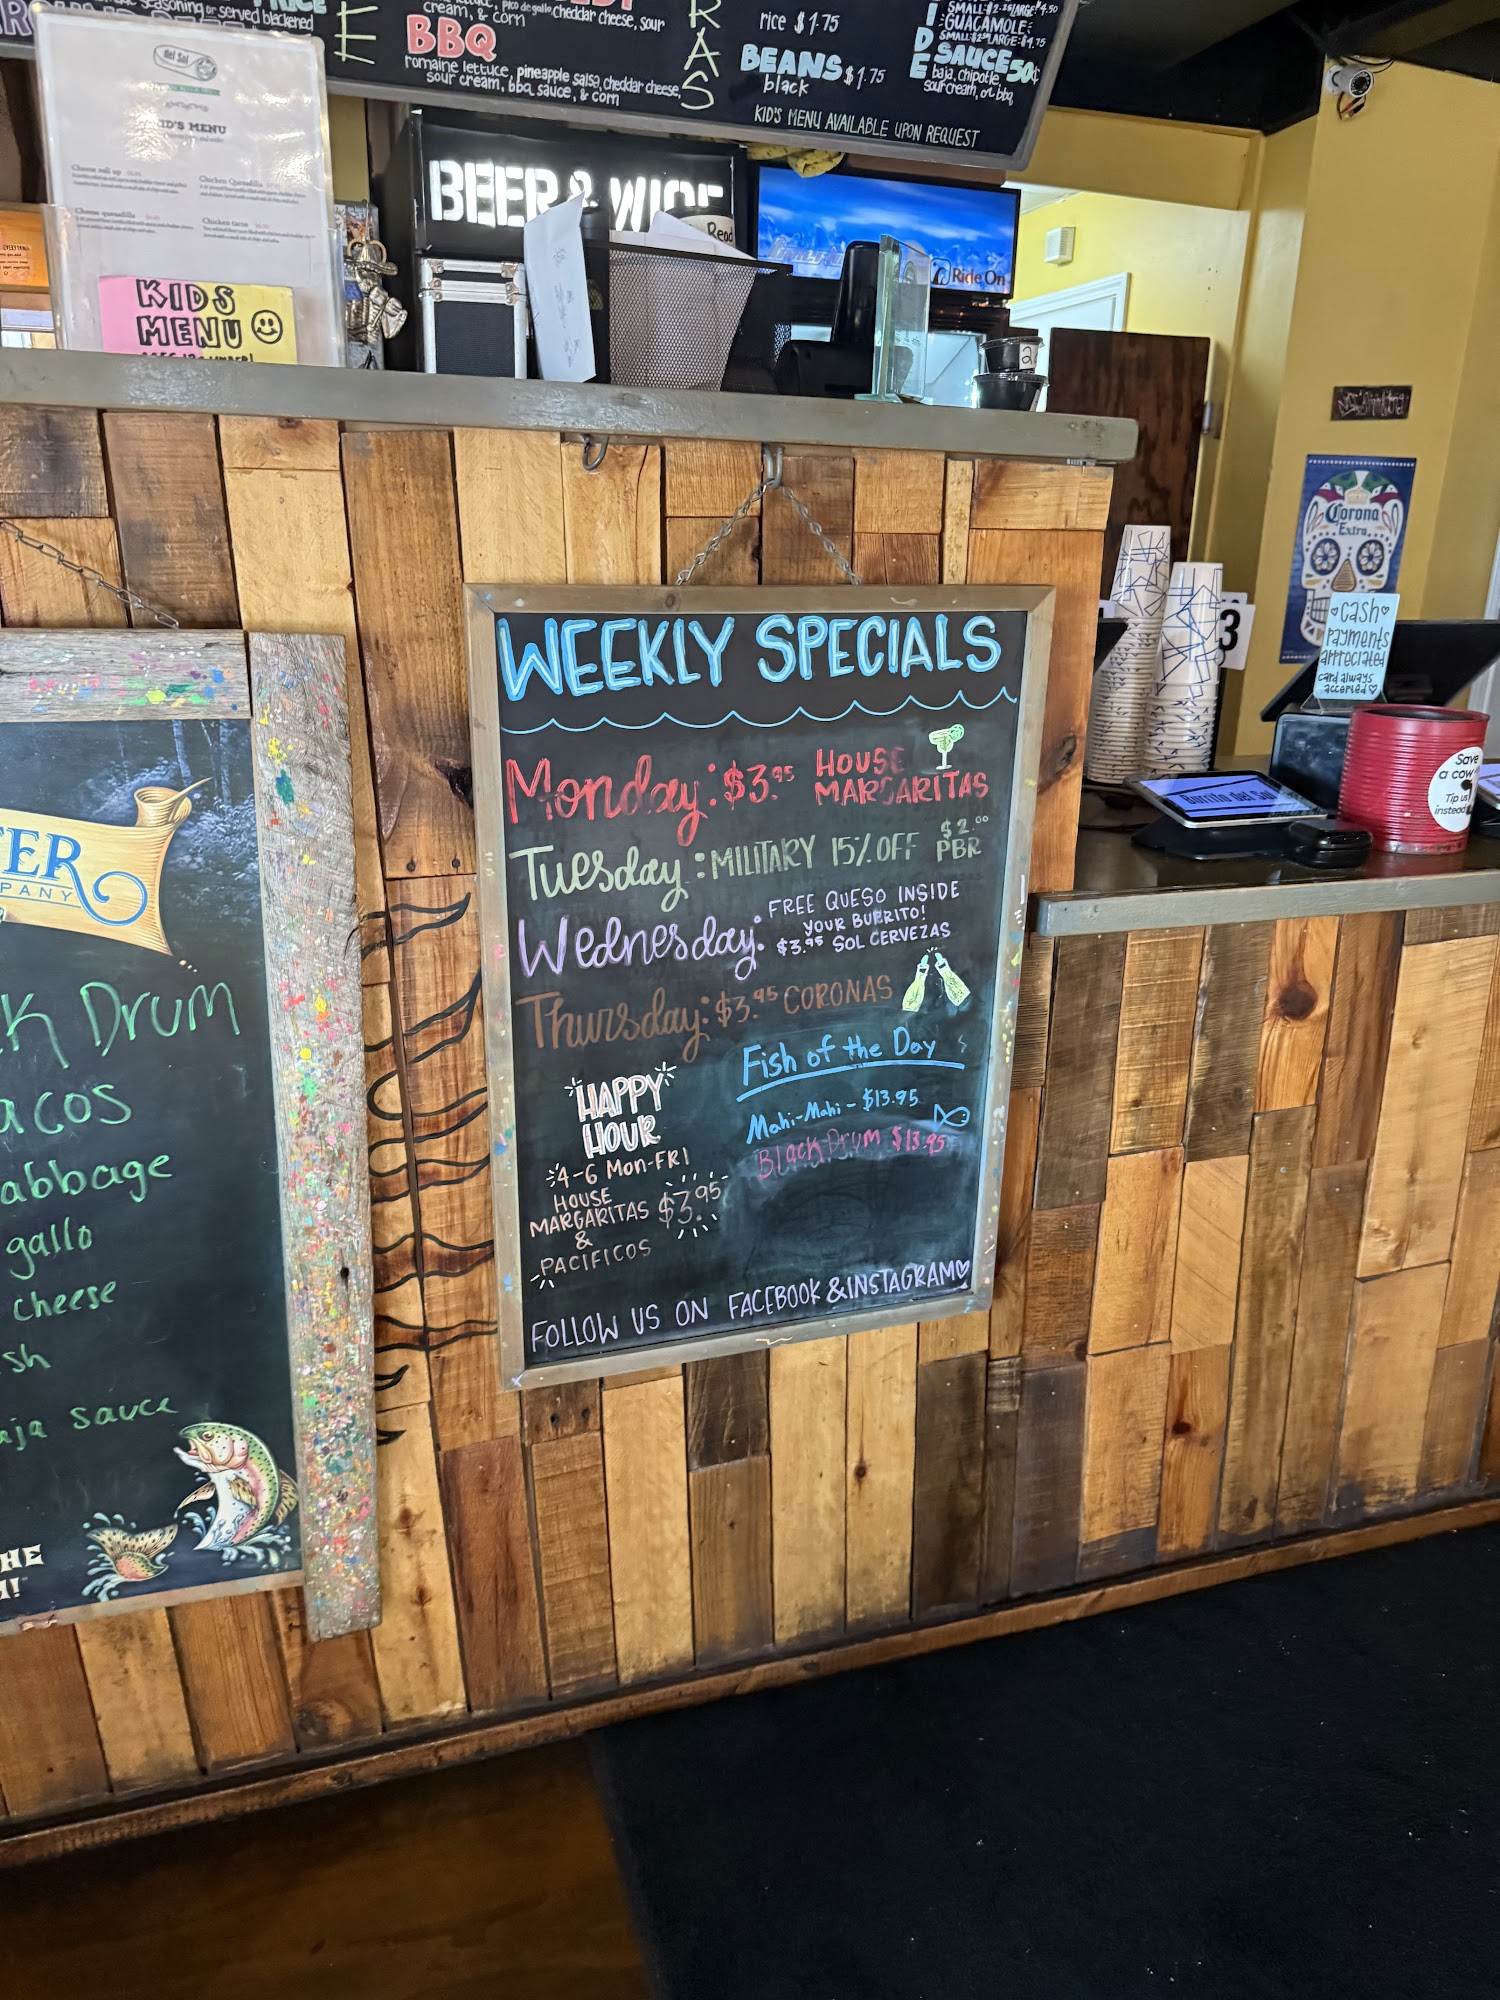 seasoning or served blackened
cream, & corn
cheddar cheese, sour
BBQ
romaine lettuce, pineapple salsa, cheddar cheese,
sour cream, bbq sauce, & corn
E
R
A
S
rice $1.75
BEANS $1.75
black
KID'S MENU AVAILABLE UPON REQUEST
I
D
E
GUACAMOLE:
SAUCE 50¢
baja, chipotle,
sour cream, or bbq
del Sol
KID'S MENU
Cheese roll up
Chicken Quesadilla
Cheese quesadilla
Chicken tacos
KIDS
MENU
BEER & WINE
Read
Ride On
2
Corona
Extra
3
Cash
Payments
appreciated
card always
accepted
Burrito del Sol
Save
a cow
Tip us
instead
WEEKLY SPECIALS
Monday: $3.95 HOUSE
MARGARITAS
Tuesday: MILITARY 15% OFF $2.00
PBR
Wednesday: FREE QUESO INSIDE
YOUR BURRITO!
$3.95 SOL CERVEZAS
Thursday: $3.95 CORONAS
Fish of the Day
Mahi-Mahi - $13.95
Black Drum $13.95
HAPPY
HOUR
4-6 MON-FRI
HOUSE
MARGARITAS $3.95
&
PACIFICOS
FOLLOW US ON FACEBOOK & INSTAGRAM
TER
PANY
k Drum
acos
abbage
gallo
cheese
sh
aja sauce
HE
!